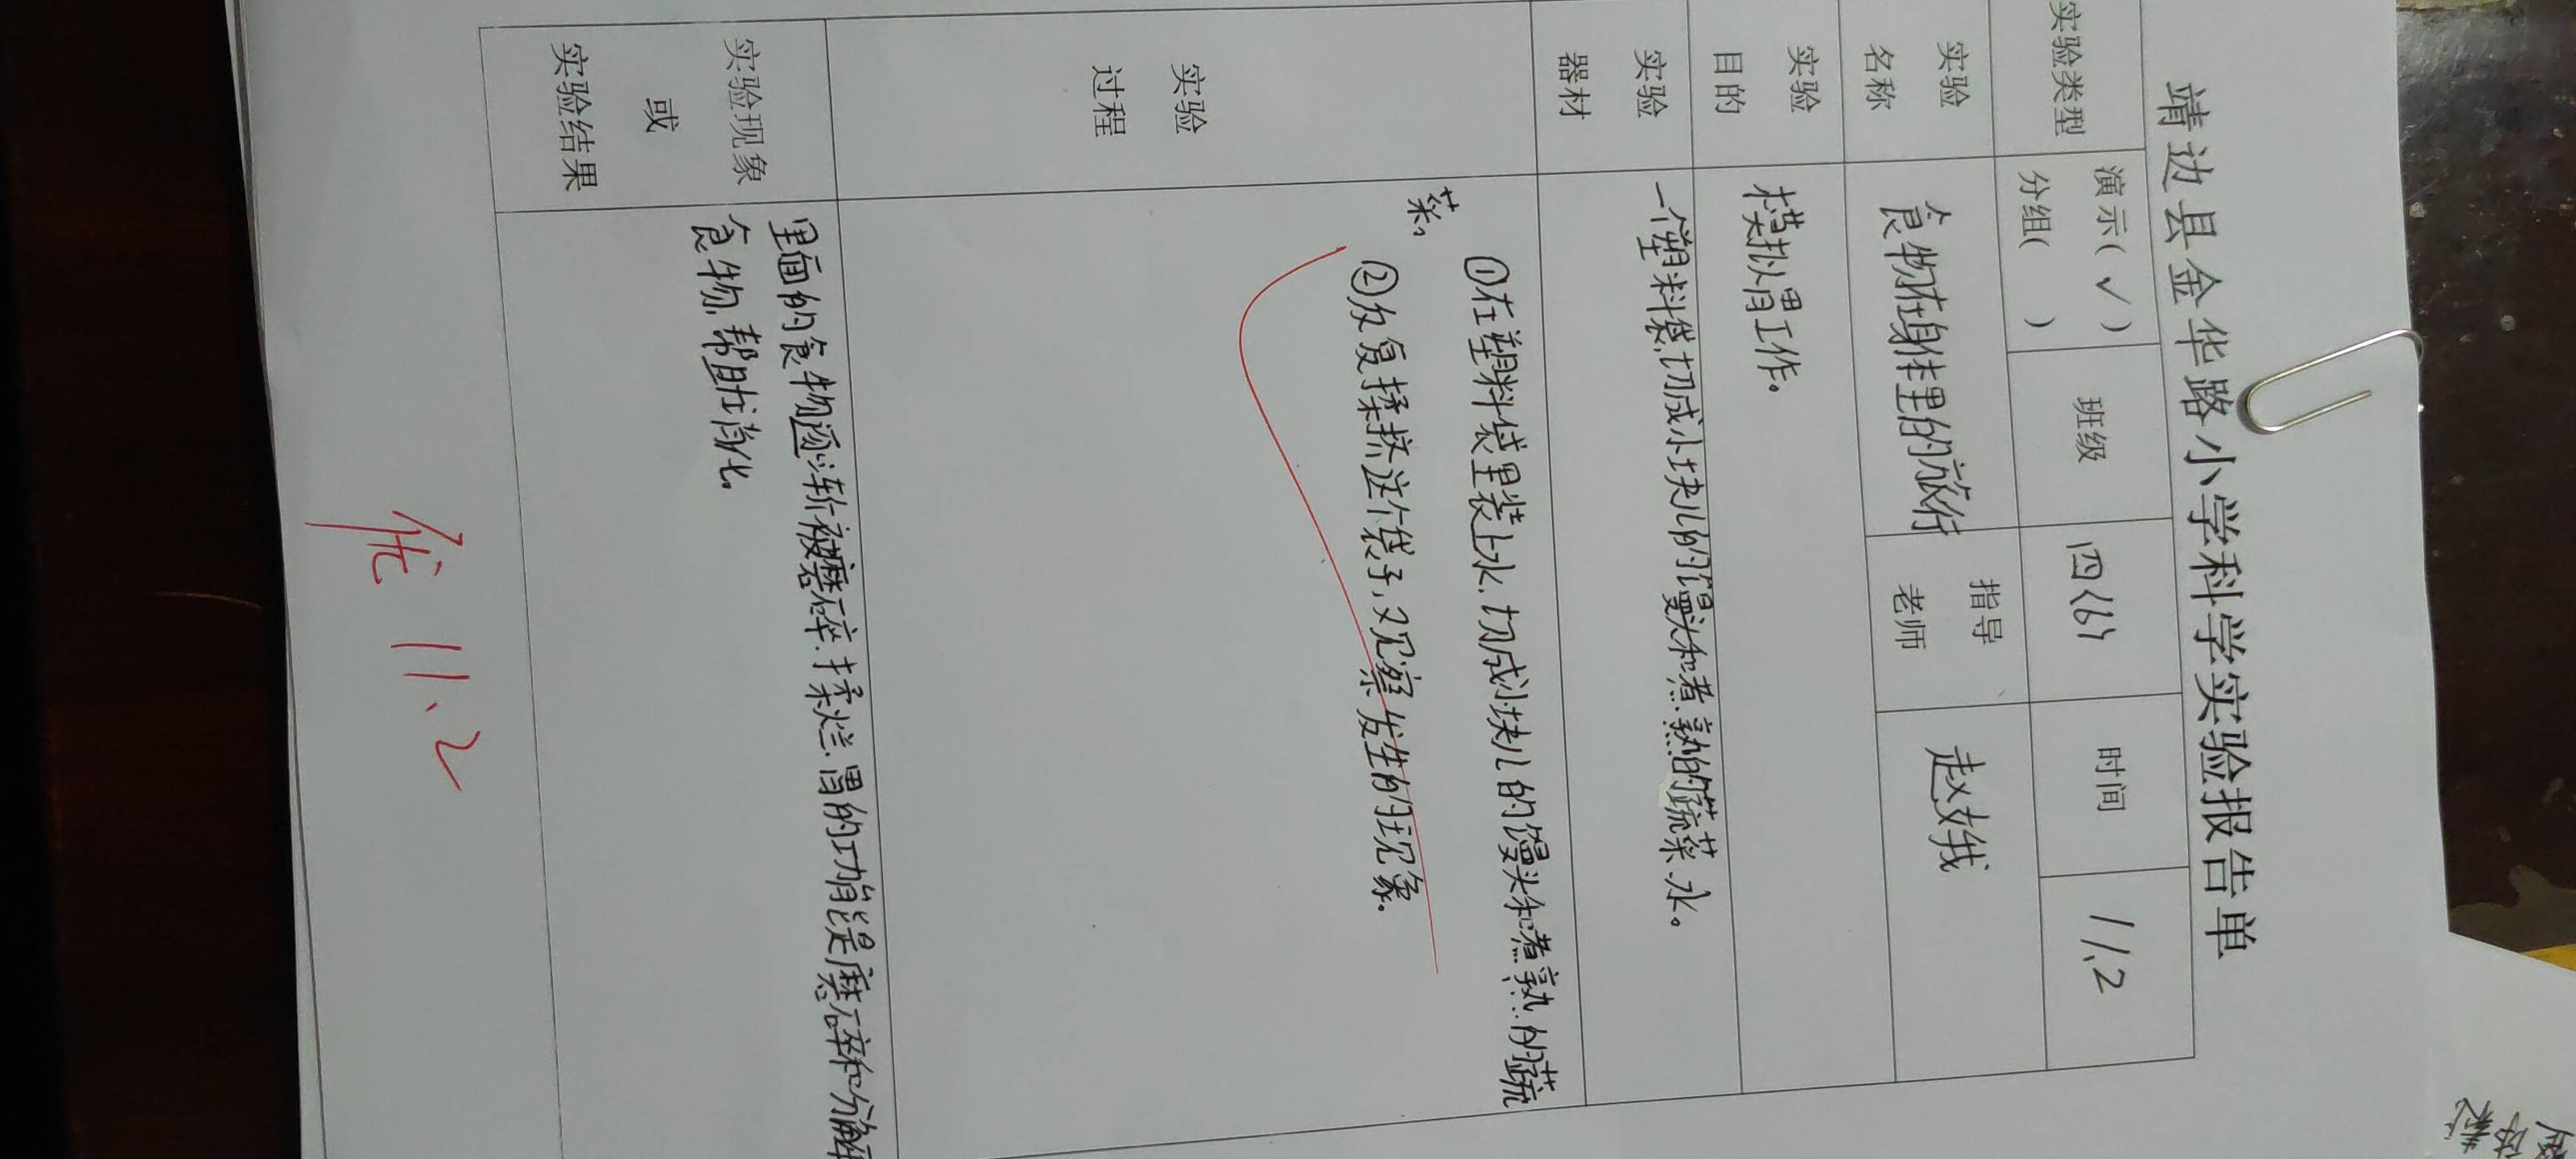 靖边县金华路小学科学实验报告单
实验类型 演示(✓) 分组( ) 班级 四(6) 时间 11.2
实验名称 食物在身体里的旅行 指导老师 赵娥
实验目的 模拟胃工作。
实验器材 一个塑料袋,切成小块儿的馒头和煮熟的蔬菜、水。
实验过程
①在塑料袋里装上水,切成小块儿的馒头和煮熟的蔬
菜。
②反复揉挤这个袋子,观察发生的现象。
实验现象
或
实验结果
里面的食物逐渐被磨碎、揉烂.胃的功能是磨碎和分解
食物,帮助消化。
优 11.2